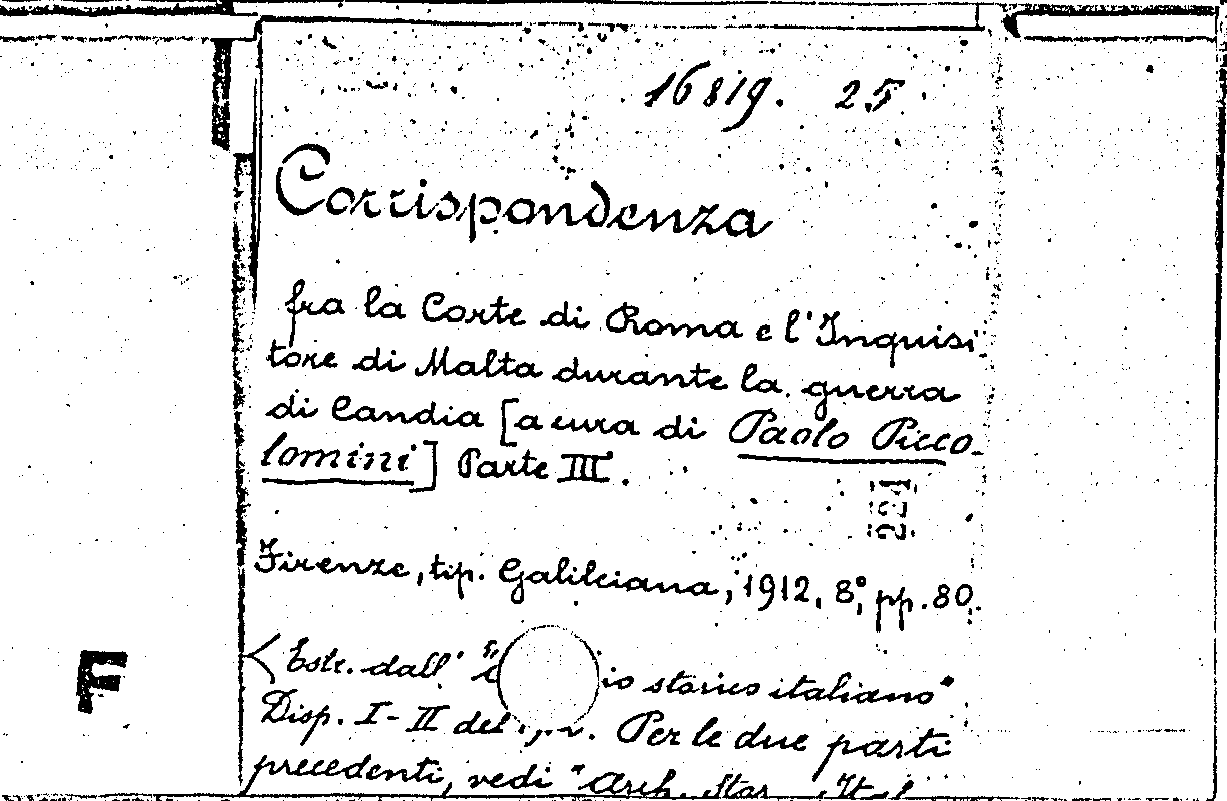 16819. 25
Corrispondenza
fra la Corte di Roma e l'Inquisi-
tore di Malta durante la guerra
di Candia [a cura di Paolo Picco-
lomini] Parte III.
221
Firenze, tip. Galileiana, 1912, 8°, pp. 80.
F
<Estr. dall' " io storico italiano"
Disp. I-II del Per le due parti
precedenti, vedi "Arch. Stor. Ital